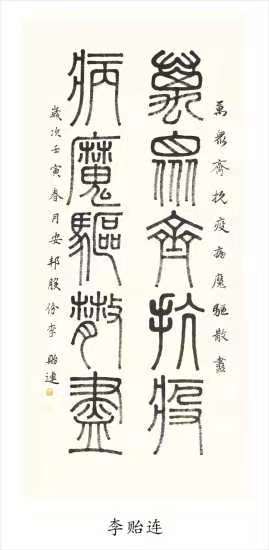 萬眾齊抗疫病魔驅散盡
萬眾齊抗疫
病魔驅散盡
歲次壬寅春月安邦股份李貽連
李贻连